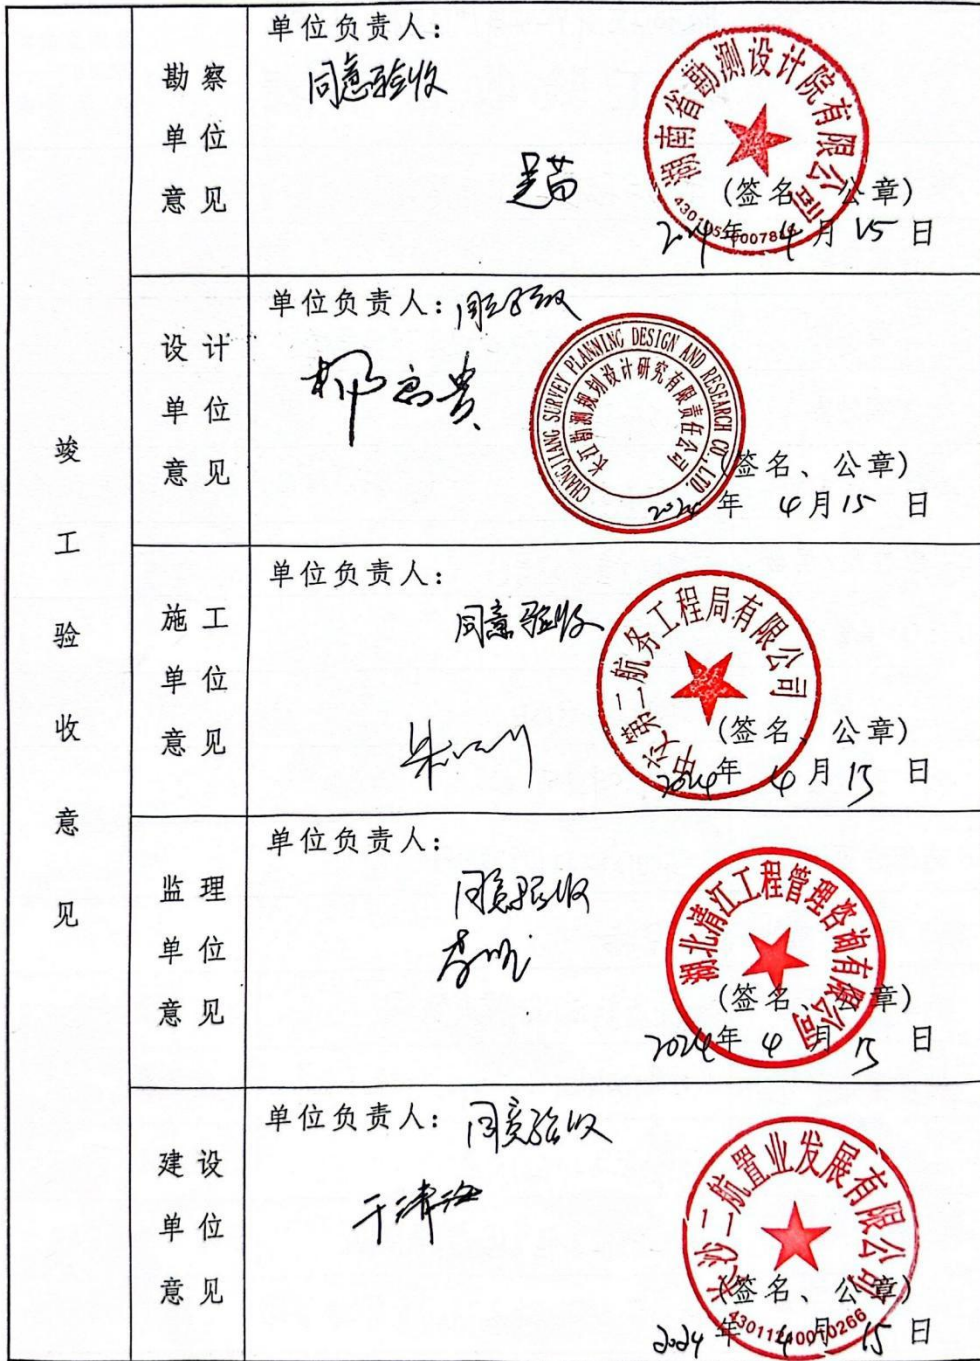 竣工验收意见
勘察单位意见
单位负责人:
同意验收
湖南省勘测设计院有限公司
(签名、公章)
2024年 4月 15日
设计单位意见
单位负责人: 同意验收
CHANGJIANG SURVEY PLANNING DESIGN AND RESEARCH CO.,LTD.
长江勘测规划设计研究有限责任公司
(签名、公章)
2024年 4月15日
施工单位意见
单位负责人:
同意验收
中交第二航务工程局有限公司
(签名、公章)
2024年 4月15日
监理单位意见
单位负责人:
同意验收
湖北清江工程管理咨询有限公司
(签名、公章)
2024年 4月15日
建设单位意见
单位负责人: 同意验收
长沙二航置业发展有限公司
(签名、公章)
43011210010266
2024年 4月15日